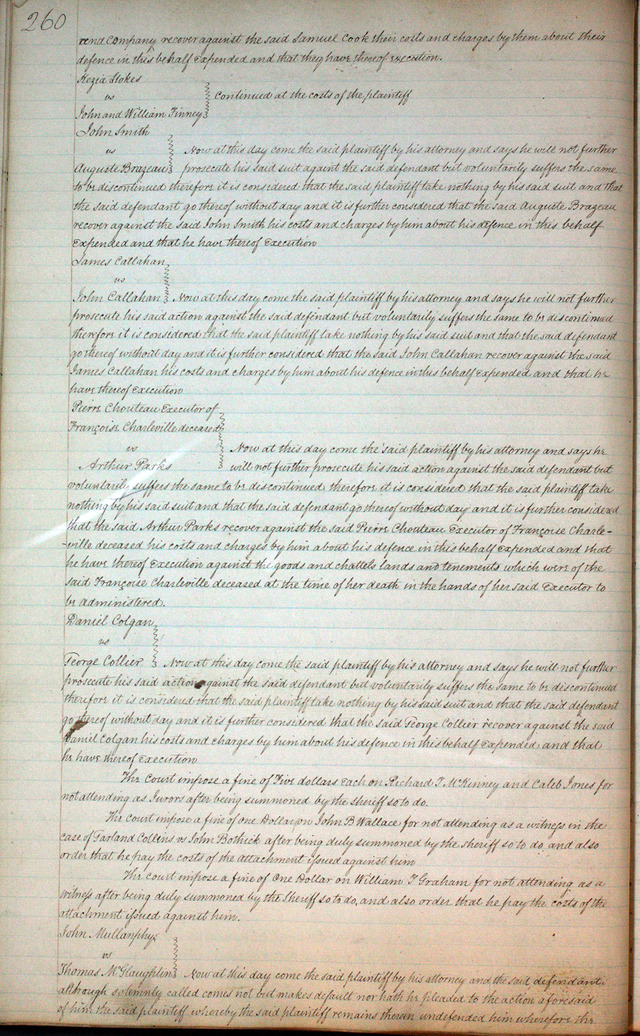 260
rend Company recover against the said Samuel Cook their costs and charges by them about their
defence in this behalf Expended and that they have thereof Execution.
Kezia Stokes
vs
Continued at the costs of the plaintiff
John and William Finney
John Smith
vs
Now at this day come the said plaintiff by his attorney and says he will not further
Auguste Brazeau prosecute his said suit against the said defendant but voluntarily suffers the same
to be discontinued therefore it is considered that the said plaintiff take nothing by his said suit and that
the said defendant go thereof without day and it is further considered that the said Auguste Brazeau
recover against the said John Smith his costs and charges by him about his defence in this behalf
Expended and that he have thereof Execution
James Callahan
vs
John Callahan Now at this day come the said plaintiff by his attorney and says he will not further
prosecute his said action against the said defendant but voluntarily suffers the same to be discontinued
therefore it is considered that the said plaintiff take nothing by his said suit and that the said defendant
go thereof without day and it is further considered that the said John Callahan recover against the said
James Callahan his costs and charges by him about his defence in this behalf Expended and that he
have thereof Execution
Pierre Chouteau Executor of
Françoise Charleville deceased
vs Now at this day come the said plaintiff by his attorney and says he
Arthur Parks will not further prosecute his said action against the said defendant but
voluntarily suffers the same to be discontinued therefore it is considered that the said plaintiff take
nothing by his said suit and that the said defendant go thereof without day and it is further considered
that the said Arthur Parks recover against the said Pierre Chouteau Executor of Françoise Charle-
-ville deceased his costs and charges by him about his defence in this behalf Expended and that
he have thereof Execution against the goods and chattels lands and tenements which were of the
said Françoise Charleville deceased at the time of her death in the hands of her said Executor to
be administered.
Daniel Colgan
vs
George Collier Now at this day come the said plaintiff by his attorney and says he will not further
prosecute his said action against the said defendant but voluntarily suffers the same to be discontinued
therefore it is considered that the said plaintiff take nothing by his said suit and that the said defendant
go thereof without day and it is further considered that the said George Collier recover against the said
Daniel Colgan his costs and charges by him about his defence in this behalf Expended and that
he have thereof Execution
The Court impose a fine of Five dollars Each on Richard T. McKinney and Caleb Jones for
not attending as Jurors after being summoned by the sheriff so to do.
The Court impose a fine of one Dollar on John B Wallace for not attending as a witness in the
case of Garland Collins vs John Bothick after being duly summoned by the sheriff so to do, and also
order that he pay the costs of the attachment issued against him
The Court impose a fine of One Dollar on William T Graham for not attending as a
witness after being duly summoned by the Sheriff so to do, and also order that he pay the costs of the
attachment issued against him.
John Mullanphy
vs
Thomas McGlaughlin Now at this day come the said plaintiff by his attorney and the said defendant
although solemnly called comes not but makes default nor hath he pleaded to the action aforesaid
of him the said plaintiff whereby the said plaintiff remains therein undefended him wherefore the